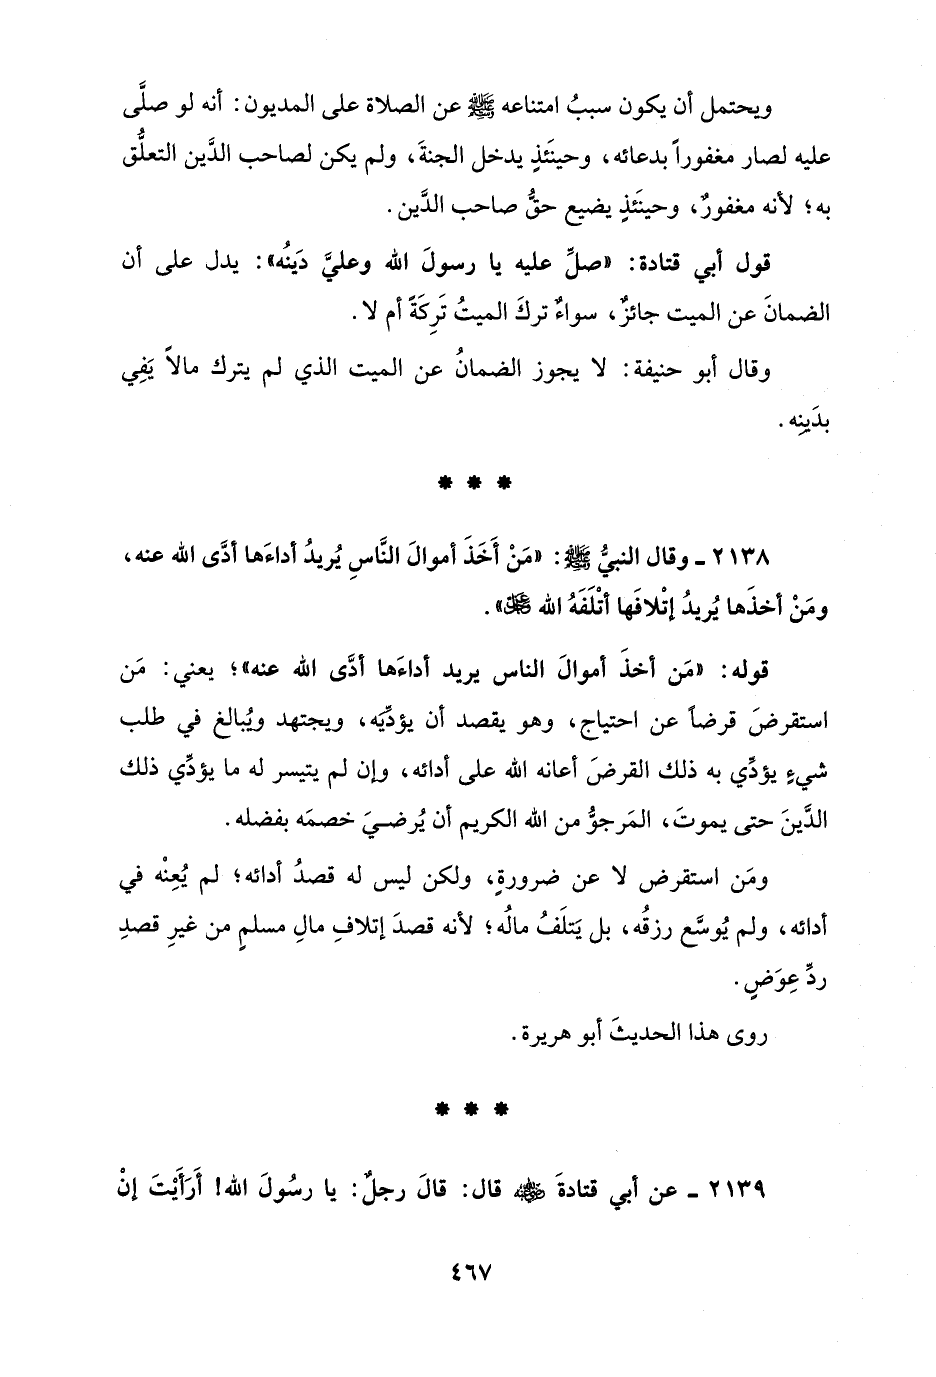 ويحتمل أن يكون سببُ امتناعه ﷺ عن الصلاة على المديون: أنه لو صلَّى
عليه لصار مغفوراً بدعائه، وحينَئذٍ يدخل الجنةَ، ولم يكن لصاحب الدَّين التعلُّق
به؛ لأنه مغفورٌ، وحينَئذٍ يضيع حقُّ صاحب الدَّين.
قول أبي قتادة: «صلِّ عليه يا رسولَ الله وعليَّ دَينُه»: يدل على أن
الضمانَ عن الميت جائزٌ، سواءٌ تركَ الميتُ تَرِكَةً أم لا.
وقال أبو حنيفة: لا يجوز الضمانُ عن الميت الذي لم يترك مالاً يَفِي
بدَينِه.
* * *
٢١٣٨ ـ وقال النبيُّ ﷺ: «مَنْ أَخَذَ أموالَ النَّاسِ يُريدُ أداءَها أدَّى الله عنه،
ومَنْ أخذَها يُريدُ إتْلافَها أتْلَفَهُ الله ﷻ».
قوله: «مَن أخذَ أموالَ الناس يريد أداءَها أدَّى الله عنه»؛ يعني: مَن
استقرضَ قرضاً عن احتياج، وهو يقصد أن يؤدِّيَه، ويجتهد ويُبالغ في طلب
شيءٍ يؤدِّي به ذلك القرضَ أعانه الله على أدائه، وإن لم يتيسر له ما يؤدِّي ذلك
الدَّينَ حتى يموتَ، المَرجوُّ من الله الكريم أن يُرضيَ خصمَه بفضله.
ومَن استقرض لا عن ضرورةٍ، ولكن ليس له قصدُ أدائه؛ لم يُعِنْه في
أدائه، ولم يُوسَّع رزقُه، بل يَتلَفُ مالُه؛ لأنه قصدَ إتلافِ مالِ مسلمٍ من غيرِ قصدِ
ردِّ عِوَضٍ.
روى هذا الحديثَ أبو هريرة.
* * *
٢١٣٩ ـ عن أبي قتادةَ ﷺ قال: قالَ رجلٌ: يا رسُولَ الله! أَرَأَيْتَ إنْ
٤٦٧